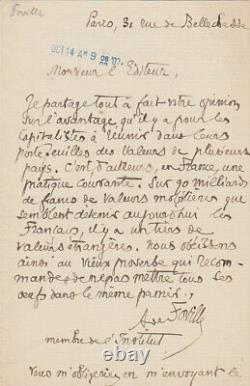 Foville
Paris, 31 rue de Bellechasse
OCT 14 AM 9 22 '07
Monsieur l'Editeur,
Je partage tout à fait votre opinion
sur l'avantage qu'il y a pour les
capitalistes à réunir dans leurs
portefeuilles des valeurs de plusieurs
pays. C'est, d'ailleurs, en France, une
pratique courante. Sur 90 milliards
de francs de valeurs mobilières que
semblent détenir aujourd'hui les
Français, il y a un tiers de
valeurs étrangères. Nous obéissons
ainsi au vieux proverbe qui recom-
mande de ne pas mettre tous les
oeufs dans le même panier.
A de Foville
membre de l'Institut.
Vous m'obligeriez en m'envoyant le